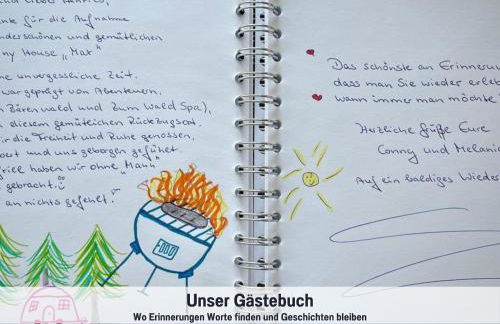 und lieber Heinrich,
nke für die Aufnahme
nderschönen und gemütlichen
ny House „Max"
ne unvergessliche Zeit.
war geprägt von Abenteuern,
Bärenwald und zum Wald Spa),
diesem gemütlichen Rückzugsort
ir die Freiheit und Ruhe genossen,
und uns geborgen gefühlt
haben wir ohne „Max"
gebracht.
an nichts gefehlt.
FOOD
Das schönste an Erinneru
dass man Sie wieder erle
wann immer man möchte
Herzliche Grüße Eure
Conny und Melanie
Auf ein baldiges Wieders
Unser Gästebuch
Wo Erinnerungen Worte finden und Geschichten bleiben